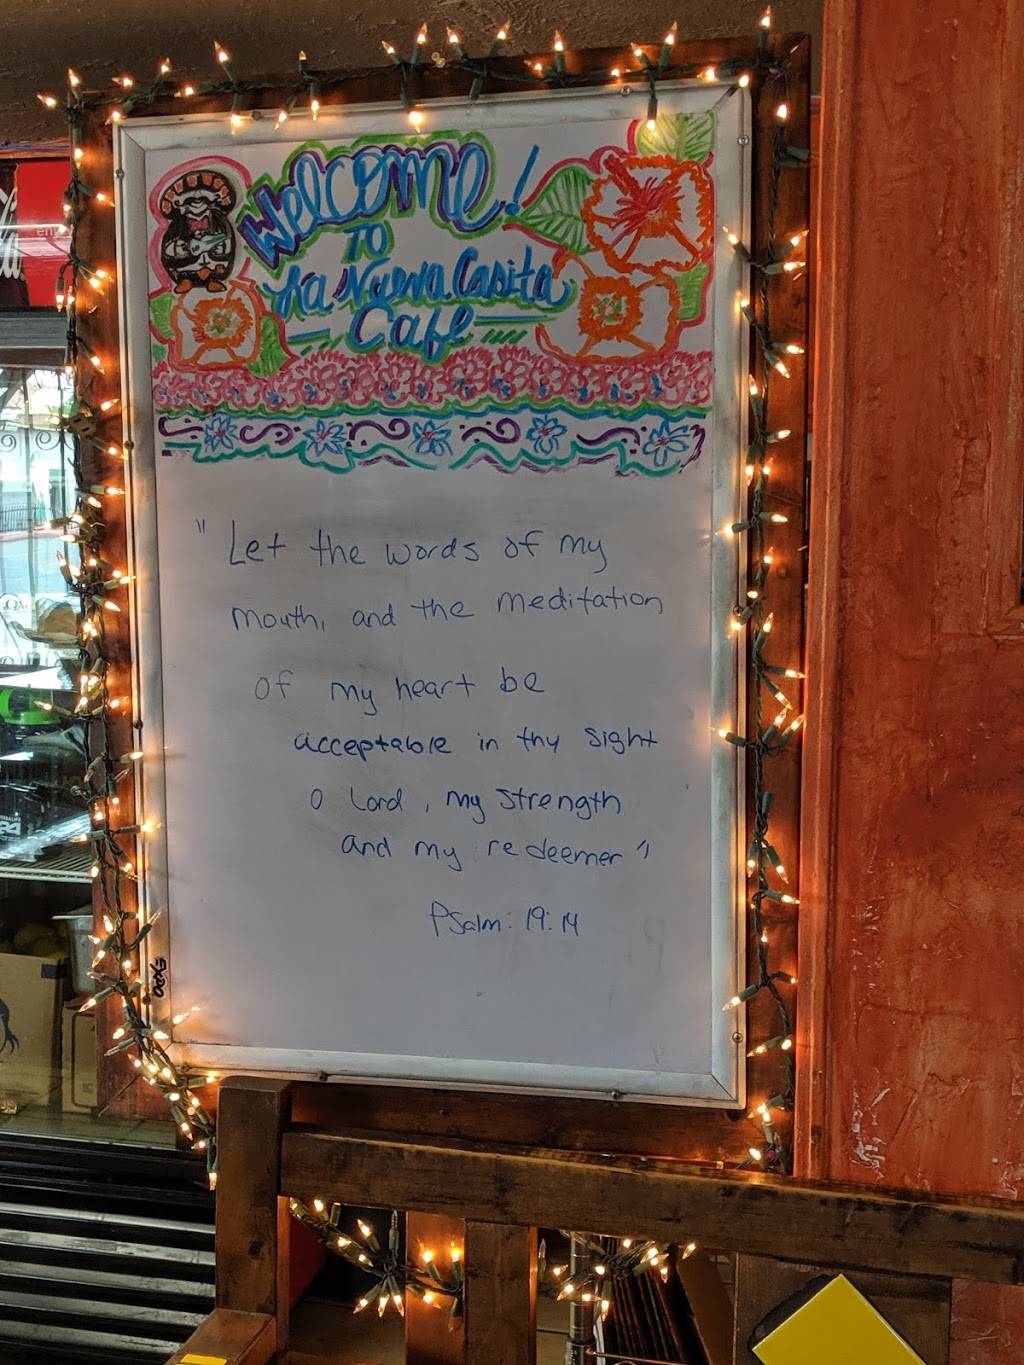 Welcome!
TO
La Nueva Casita
Cafe
" Let the words of my
mouth, and the meditation
of my heart be
acceptable in thy sight
O Lord, my strength
and my redeemer "
Psalm: 19:14
EXPO